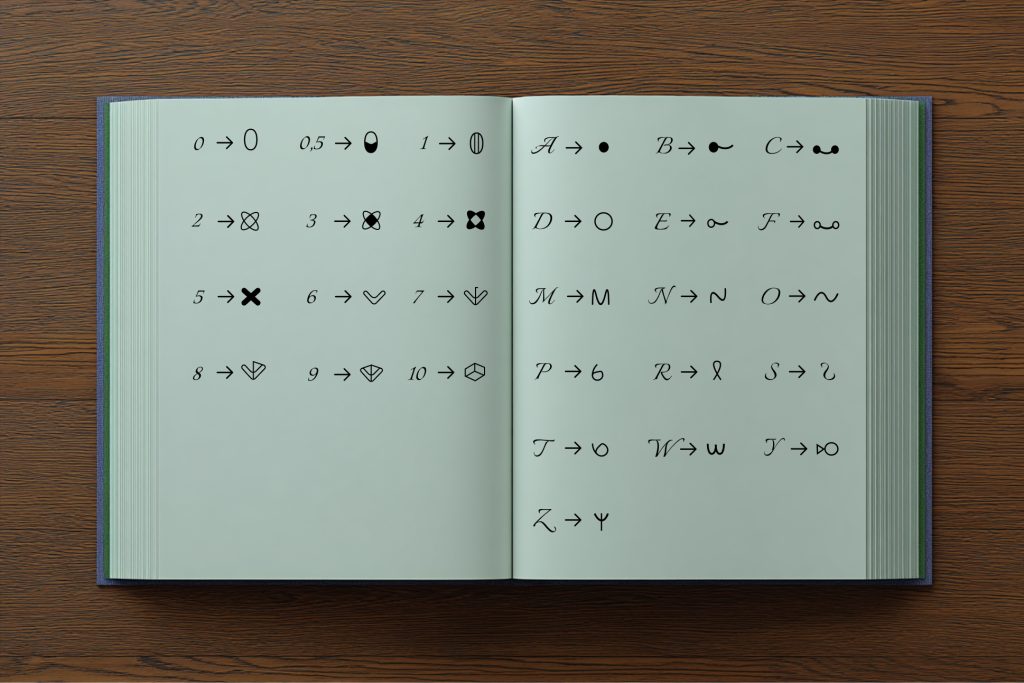 0 → 0,5 → 1 →
2 → 3 → 4 →
5 → 6 → 7 →
8 → 9 → 10 →
A → B → C →
D → E → F →
M → N → O →
P → R → S →
T → W → Y →
Z →